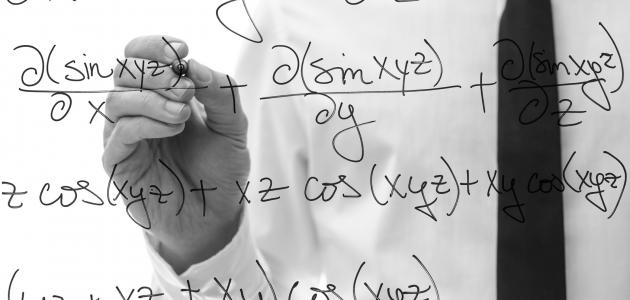 ∂(sin xyz)/∂x + ∂(sin xyz)/∂y + ∂(sin xyz)/∂z
z cos(xyz) + xz cos(xyz) + xy cos(xyz)
(yz + xz + xy) cos(xyz)